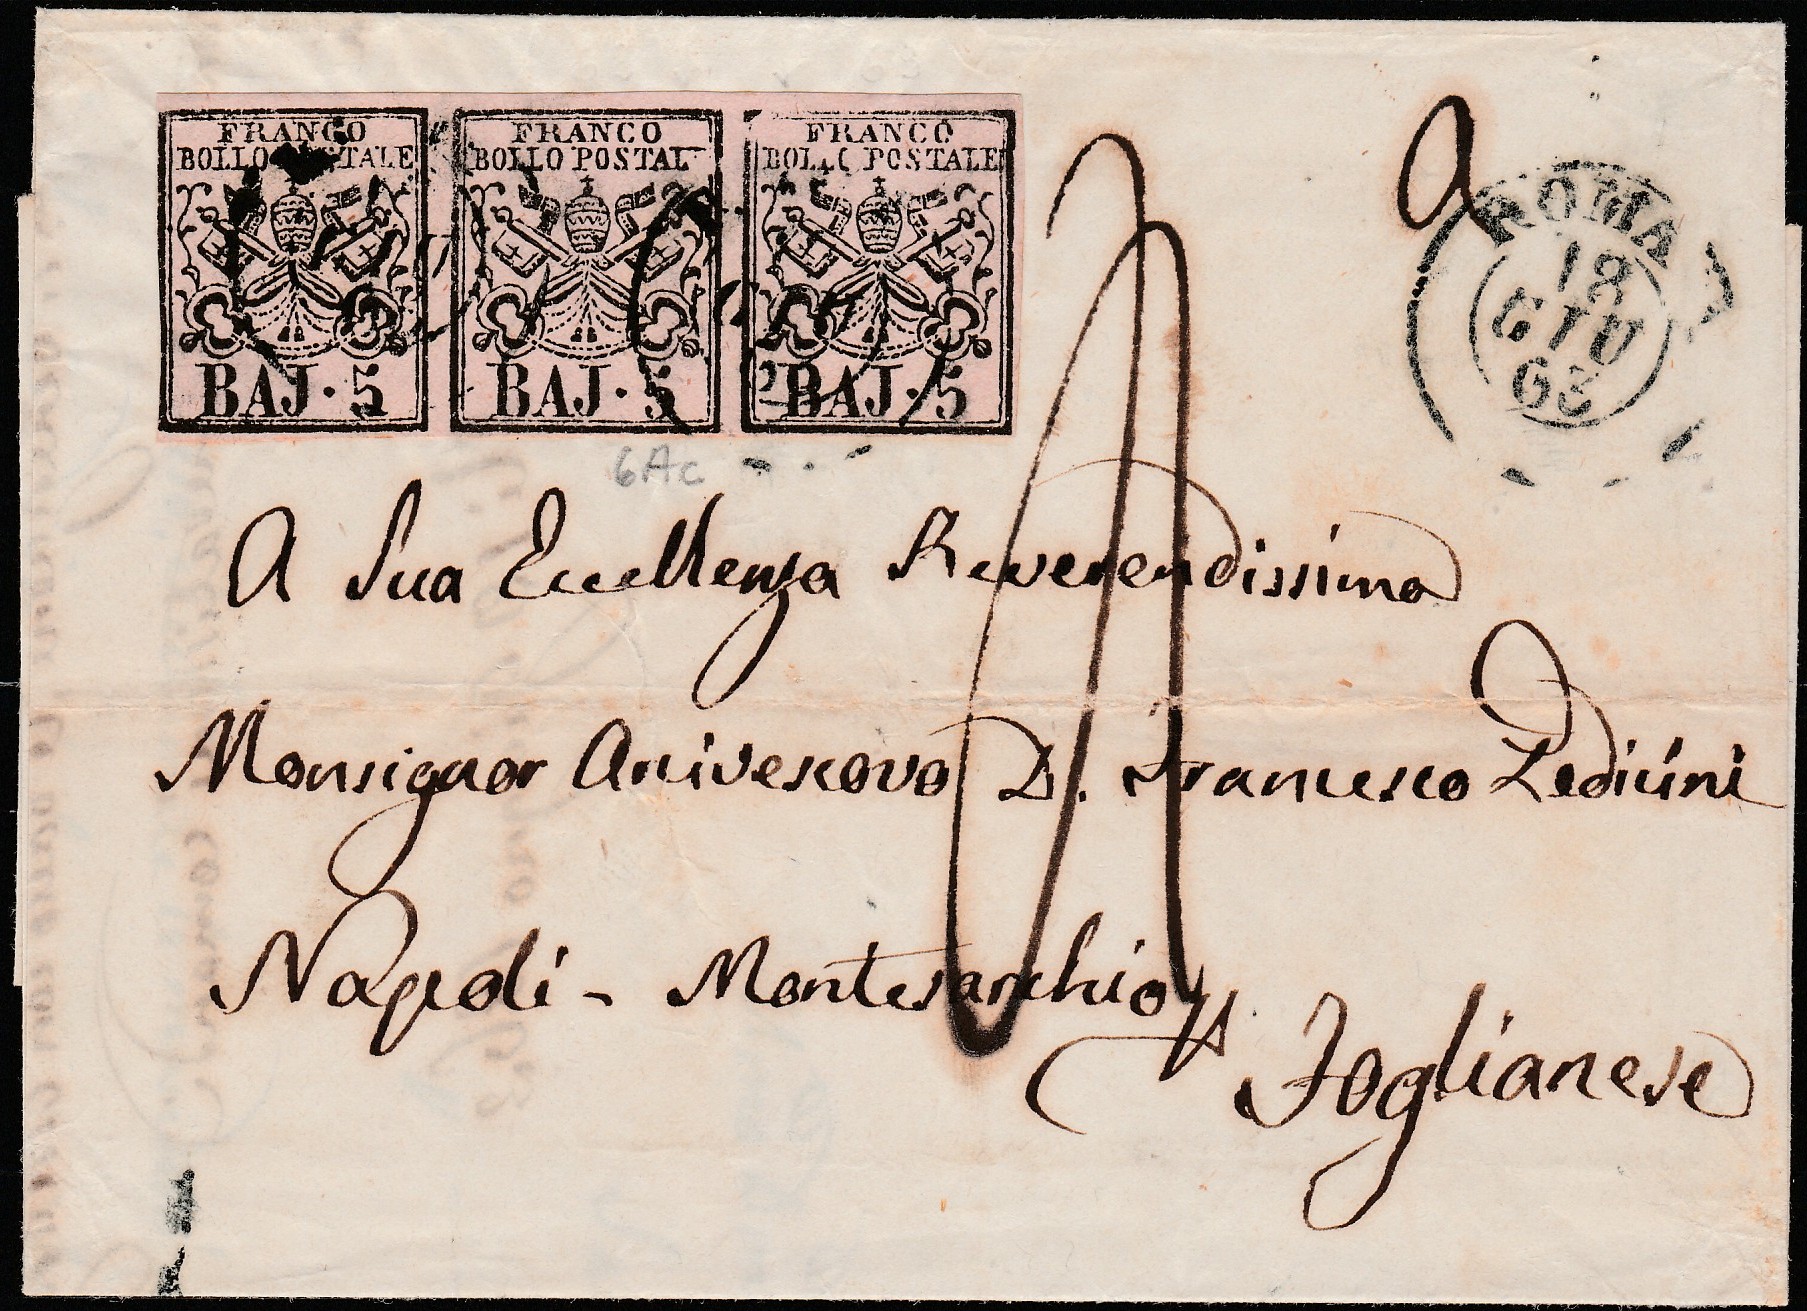 FRANCO FRANCO FRANCO
BOLLO POSTALE BOLLO POSTAL BOLLO POSTALE
BAJ · 5 BAJ · 5 BAJ · 5
ROMA
18
GIU
63
6Ac
A Sua Eccellenza Reverendissima
Monsignor Arcivescovo D. Francesco Pedicini
Napoli - Montesarchio
Foglianese